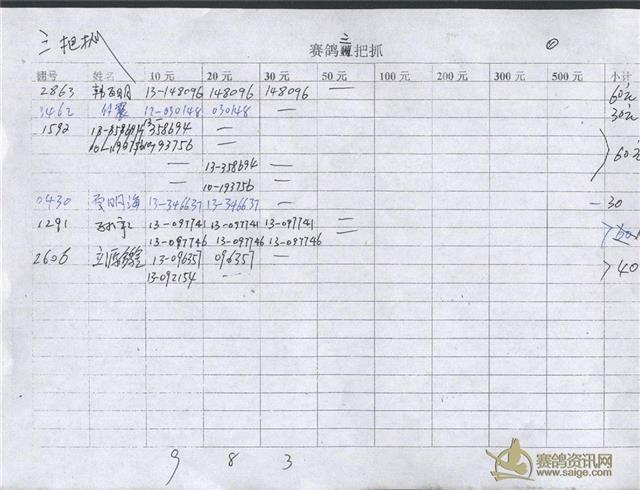 三把抓
赛鸽三把抓 ①
棚号 姓名 10元 20元 30元 50元 100元 200元 300元 500元 小计
2863 13-148096 148096 148096 — 60元
3462 12-030148 030148 — 30元
1592 13-358694 358694 —
10-193756 193756 — 60元
— 13-358694 —
— 10-193756 —
0430 贾明海 13-346637 13-346637 — -30
1291 13-097741 13-097741 13-097741 —
13-097746 13-097746 13-097746 —
2606 13-096357 096357 — 40
13-092154 —
9 8 3
赛鸽资讯网
www.saige.com